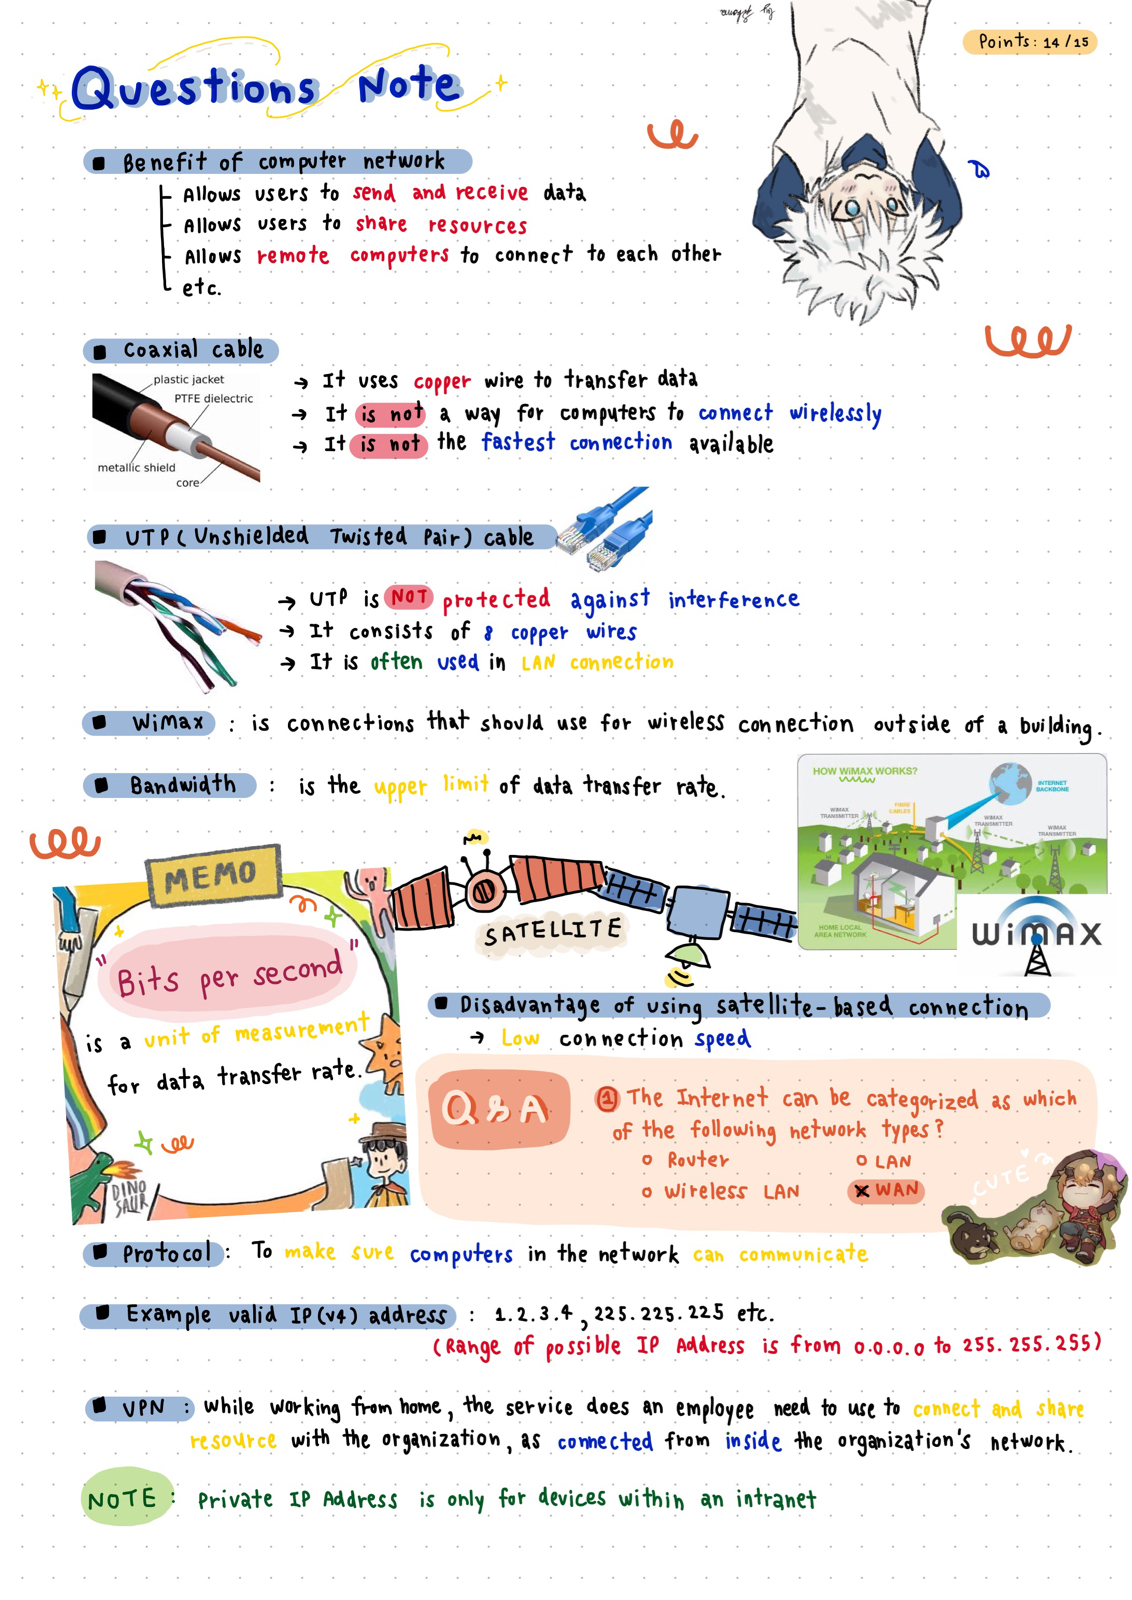 Points: 14/15
Questions Note
Benefit of computer network
Allows users to send and receive data
Allows users to share resources
Allows remote computers to connect to each other
etc.
Coaxial cable
plastic jacket
PTFE dielectric
metallic shield
core
→ It uses copper wire to transfer data
→ It is not a way for computers to connect wirelessly
→ It is not the fastest connection available
UTP (Unshielded Twisted Pair) cable
→ UTP is NOT protected against interference
→ It consists of 8 copper wires
→ It is often used in LAN connection
WiMax : is connections that should use for wireless connection outside of a building.
Bandwidth : is the upper limit of data transfer rate.
HOW WiMAX WORKS?
INTERNET BACKBONE
WiMAX TRANSMITTER
FIBRE CABLES
WiMAX TRANSMITTER
WiMAX TRANSMITTER
HOME LOCAL AREA NETWORK
WiMAX
MEMO
"Bits per second"
is a unit of measurement
for data transfer rate.
DINO
SAUR
SATELLITE
Disadvantage of using satellite-based connection
→ Low connection speed
Q&A
1 The Internet can be categorized as which
of the following network types?
Router
LAN
Wireless LAN
WAN
CUTE
Protocol : To make sure computers in the network can communicate
Example valid IP(v4) address : 1.2.3.4, 225.225.225 etc.
(Range of possible IP Address is from 0.0.0.0 to 255.255.255)
VPN : while working from home, the service does an employee need to use to connect and share
resource with the organization, as connected from inside the organization's network.
NOTE : Private IP Address is only for devices within an intranet